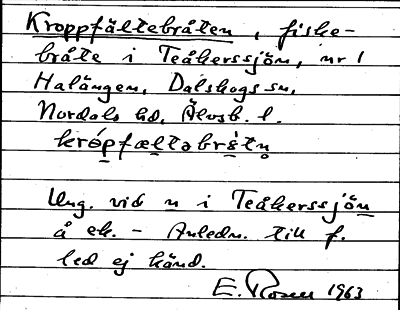 Kroppfältebråten, fiske-
bråte i Teåkerssjön, nr 1
Halängen, Dalskogs sn,
Nordals hd, Älvsb. l.
krópfæltəbrå̀tn̥
Ung. vid n i Teåkerssjön
å ek. - Anledn. till f.
led ej känd.
E. Rosen 1963